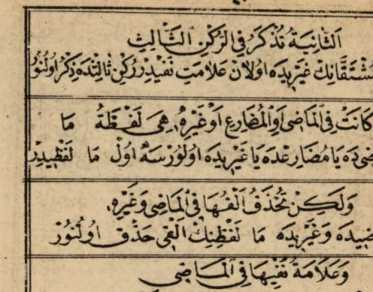 الثَّانِيَةُ تُذْكَرُ فِي الرُّكْنِ الثَّالِثِ
مشتقاتك غيريده اولان علامت نفيدر ركن ثالثده ذكر اولنور
كَانَتْ فِي الْمَاضِي اَوِ الْمُضَارِعِ اَوْ غَيْرِهِ هِيَ لَفْظَةُ مَا
ضيده يا مضارعده يا غيريده اولورسه اول ما لفظيدر
وَلٰكِنْ تُحْذَفُ اَلِفُهَا فِي الْمَاضِي وَغَيْرِهِ
ضيده وغيريده ما لفظنك الفى حذف اولنور
وَعَلَامَةُ نَفْيِهَا فِي الْمَاضِي